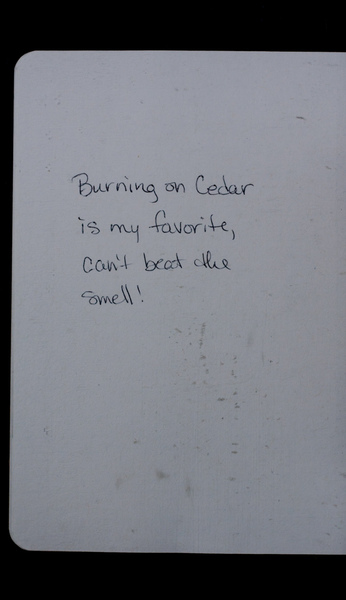 Burning on Cedar
is my favorite,
can't beat the
smell!